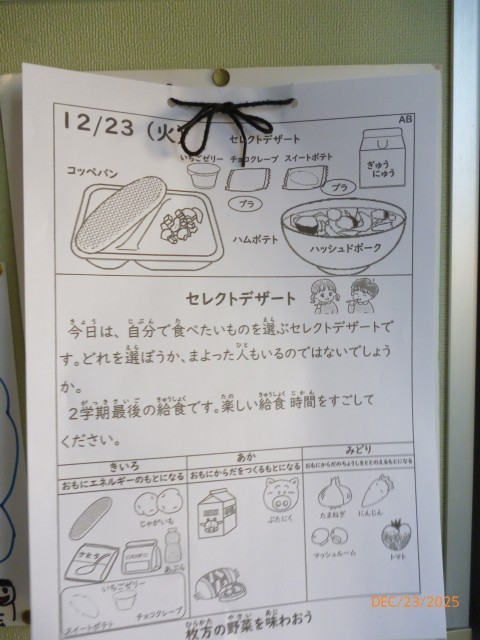 12/23（火）
AB
セレクトデザート
いちごゼリー チョコクレープ スイートポテト
ぎゅうにゅう
コッペパン
プラ
プラ
ハムポテト
ハッシュドポーク
セレクトデザート
今日は、自分で食べたいものを選ぶセレクトデザートで
す。どれを選ぼうか、まよった人もいるのではないでしょう
か。
2学期最後の給食です。楽しい給食時間をすごして
ください。
きいろ
おもにエネルギーのもとになる
あか
おもにからだをつくるもとになる
みどり
おもにからだのちょうしをととのえるもとになる
じゃがいも
あぶら
いちごゼリー
スイートポテト
チョコクレープ
ぶたにく
たまねぎ
にんじん
マッシュルーム
トマト
枚方の野菜を味わおう
DEC/23/2025